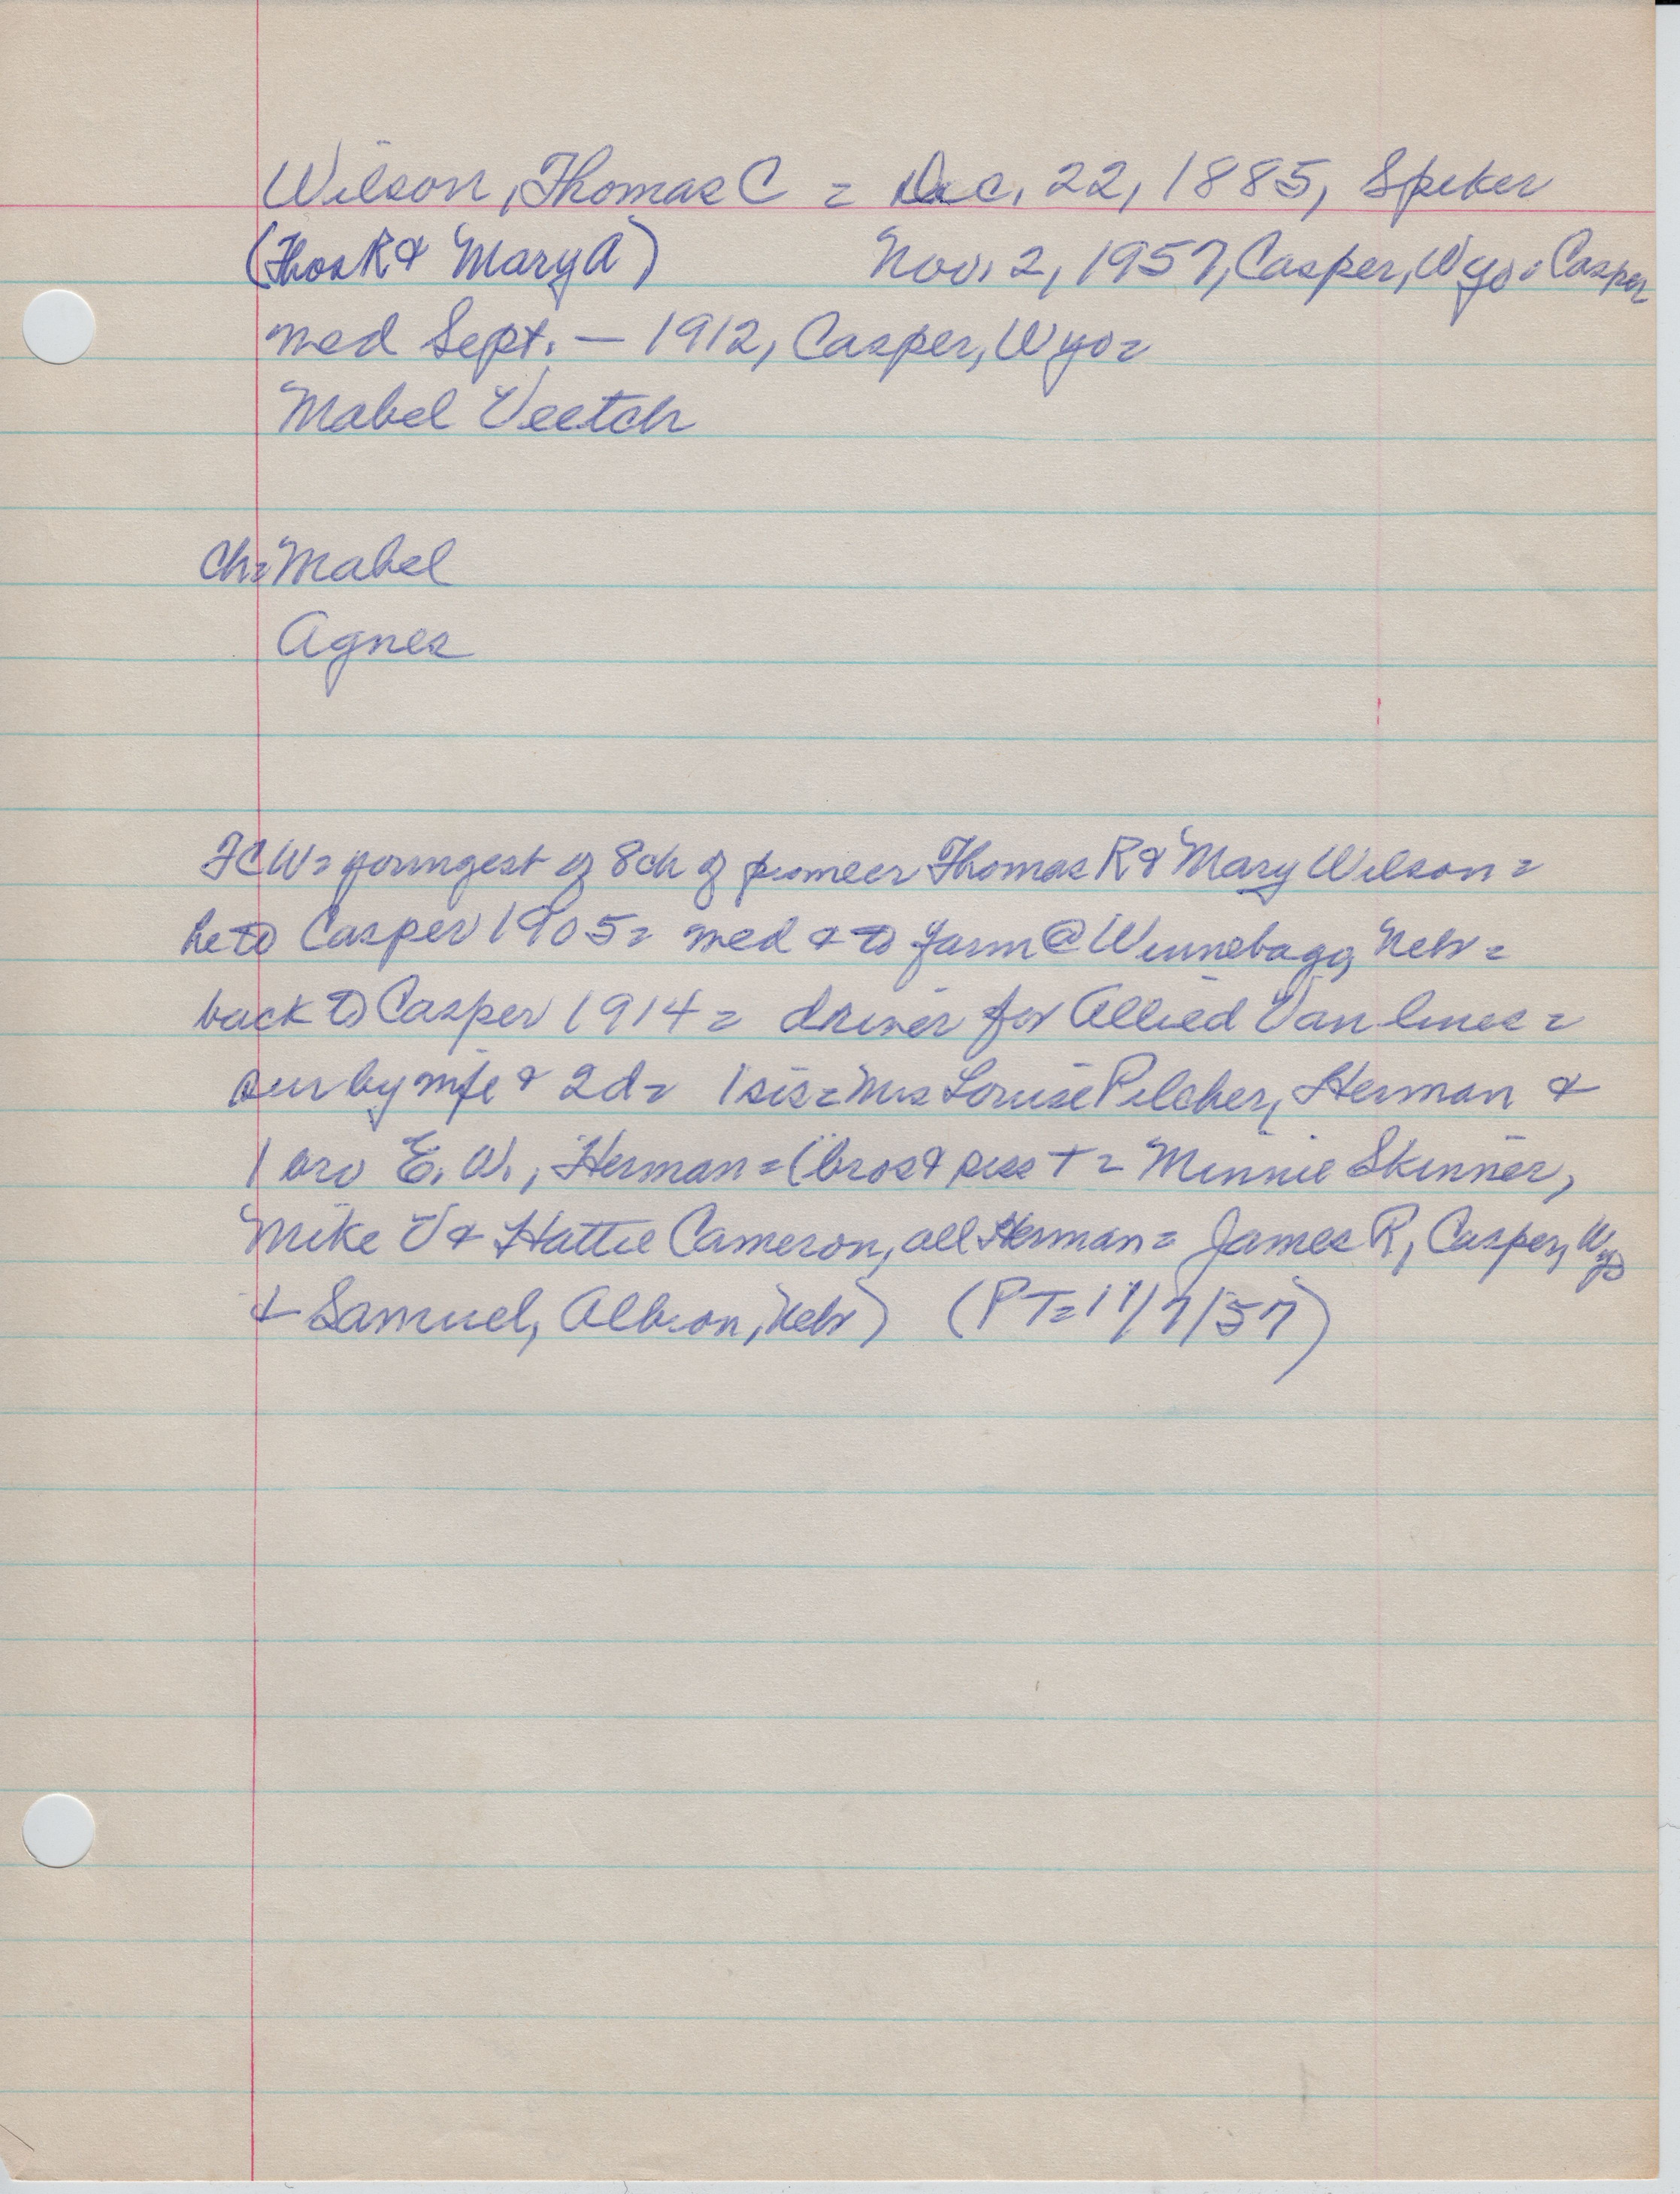 Wilson, Thomas C = Dec. 22, 1885, Speker
(Thos R & Mary A) Nov. 2, 1957, Casper, Wyo = Casper
med Sept. — 1912, Casper, Wyo =
Mabel Veetch
Ch = Mabel
Agnes
TCW = youngest of 8 ch of pioneer Thomas R & Mary Wilson =
he to Casper 1905 = med & to farm @ Winnebago, Nebr =
back to Casper 1914 = driver for Allied Van lines =
sur by wife & 2d = 1 sis = Mrs Louise Pilcher, Herman &
1 bro E. W., Herman = (bros & siss + = Minnie Skinner,
Mike V & Hattie Cameron, all Herman = James R, Casper, Wyo
& Samuel, Albion, Nebr) (PT = 11/7/57)